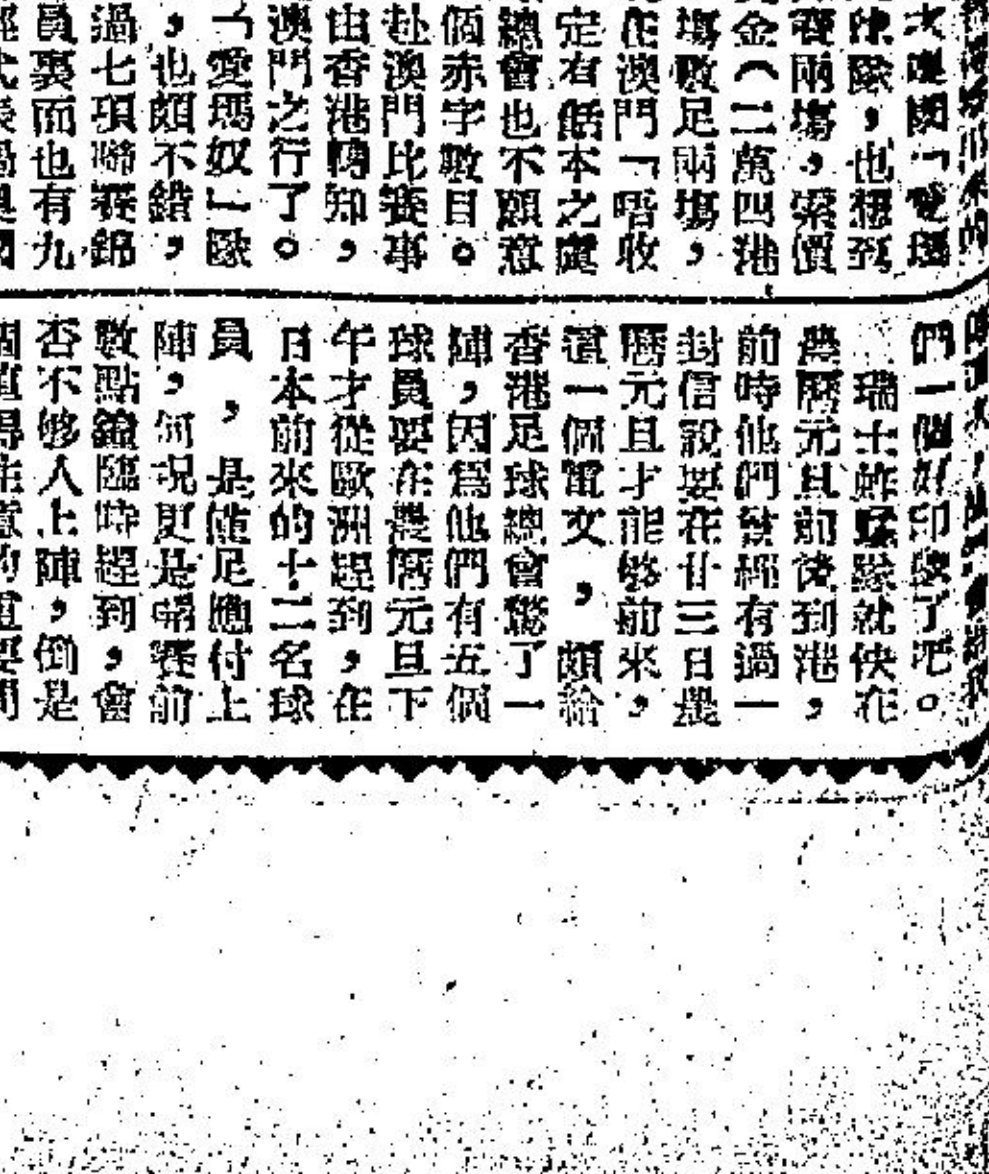 球隊,也想到
賽兩場,索價
金(二萬四港
場數足兩場,
在澳門「唔收
定有餂本之虞
總會也不願意
個赤字數目。
赴澳門比賽事
由香港轉知,
澳門之行了。
「愛瑪奴」歐
,也頗不錯,
過七項聯賽錦
員裏而也有九
們一個好印象了吧。
瑞士蚱蜢隊就快在
農曆元旦前後到港,
前時他們曾經有過一
封信說要在廿三日農
曆元旦才能够前來,
這一個電文,頗給
香港足球總會驚了一
陣,因爲他們有五個
球員要在農曆元旦下
午才從歐洲趕到,在
日本前來的十二名球
員,是僅足應付上
陣,何况更是踢賽前
數點鐘臨時趕到,會
否不够人上陣,倒是
個值得注意的重要問